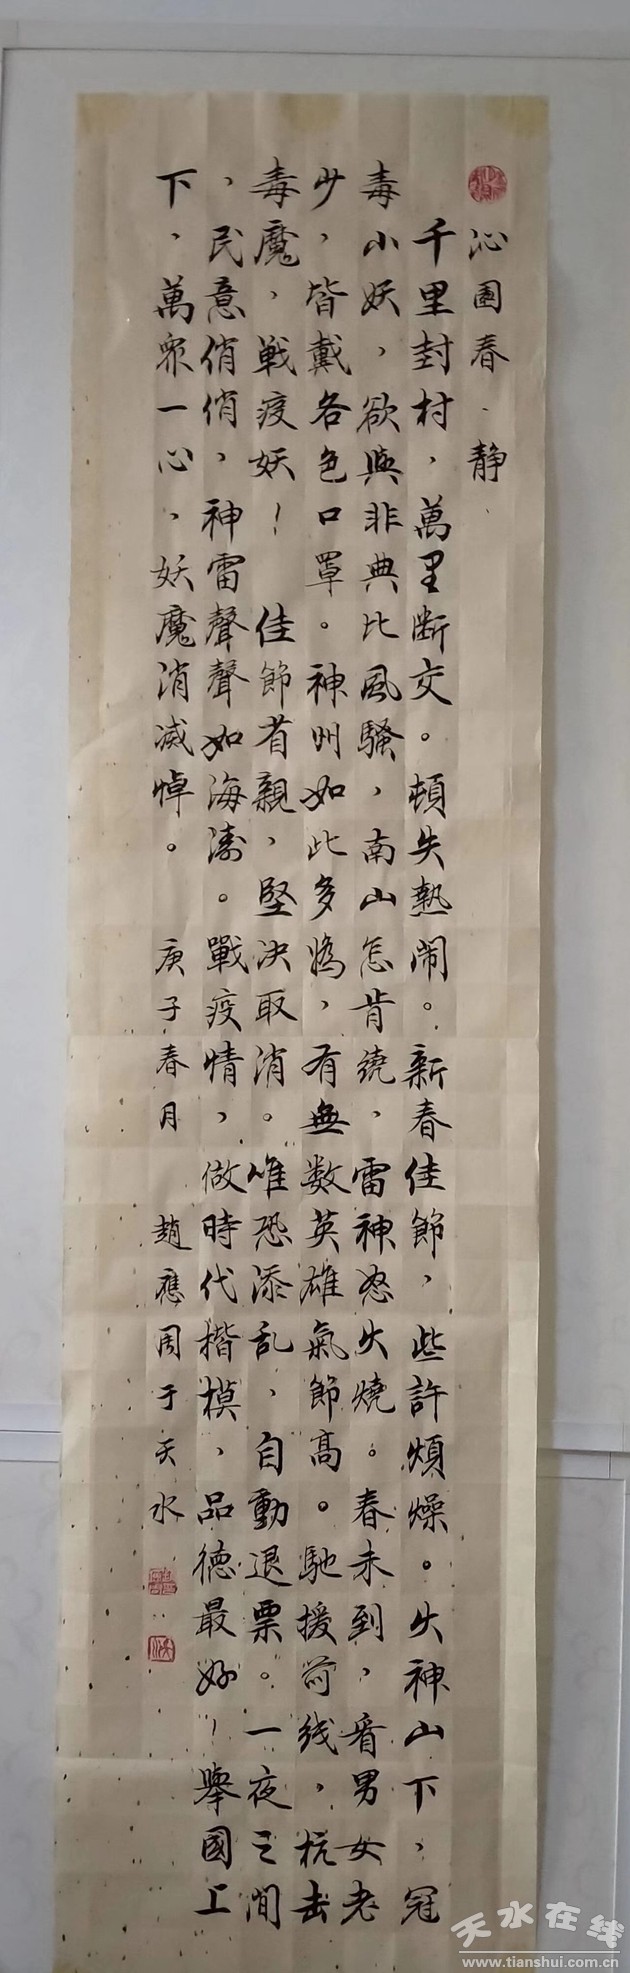 沁園春·静
千里封村，萬里断交。頓失熱闹。新春佳節，些許煩燥。火神山下，冠
毒小妖，欲與非典比風騷，南山怎肯繞，雷神怒火燒。春未到，看男女老
少，皆戴各色口罩。神州如此多嬌，有無数英雄氣節高。馳援前线，抗击
毒魔，戦疫妖！佳節省親，堅决取消。唯恐添乱，自動退票。一夜之間
，民意俏俏，神雷聲聲如海濤。戰疫情，做時代楷模，品德最好！舉國上
下，萬眾一心，妖魔消滅悼。
庚子春月 趙應周于天水
天水在线
www.tianshui.com.cn